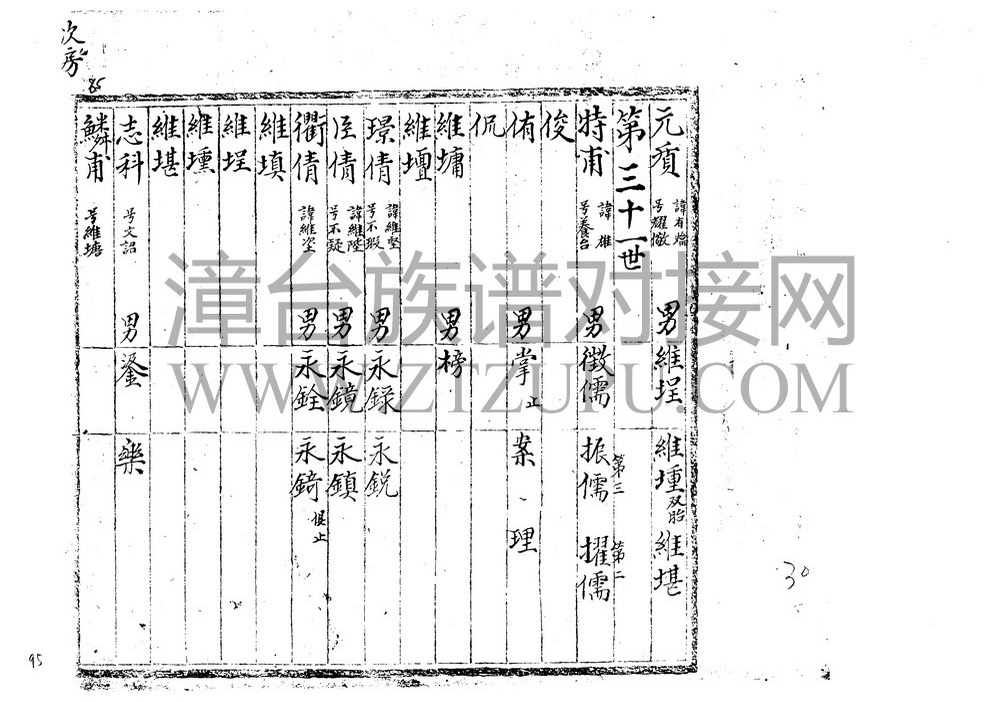 次房
85
元 諱有 号耀 男維垾 維堹双胎 維堪
第三十一世
特甫 諱雄 号養台 男徵儒 振儒第三 擢儒第二
俊
侑 男掌止 案 理
侃
維墉 男榜
維壇
璟倩 諱維堅 号不瑕 男永録 永鋭
匡倩 諱維陞 号不疑 男永鏡 永鎮
衢倩 諱維垐 男永銓 永錡俱止
維填
維埕
維壎
維堪
志科 号文詔 男鋈 樂
鱗甫 号維塘
漳台族谱对接网
WWW.ZTZUPU.COM
30
95